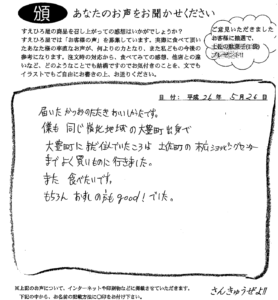 頒
あなたのお声をお聞かせください
すえひろ屋の商品を召し上がっての感想はいかがでしょうか?
すえひろ屋では「お客様の声」を募集しています。実際に食べて頂
いたあなた様の率直なお声が、何よりの力となり、また私どもの今後の
参考になります。注文時の対応から、食べてみての感想、他店との違い
など、どのようなことでも結構ですのでお気付きのことを、文でも
イラストでもご自由にお書きの上、お送りください。
ご意見いただきました
お客様に抽選で、
プレゼント!!
日付:平成26年5月26日
届いた かつおのたたき おいしかったです。
僕も 同じ 地域の 大豊町出身で
大豊町に 住んでいたころは 土佐町の 末広ショッピングセンター
まで よく買いものに行きました。
また 食べたいです。
もちろん おれのも good! でした。
さんきゅうぜよ!!
※上記のお声について、インターネットや印刷物などに掲載させていただきます。
下記の中から、お名前の記載方法に〇印をお付け下さい。